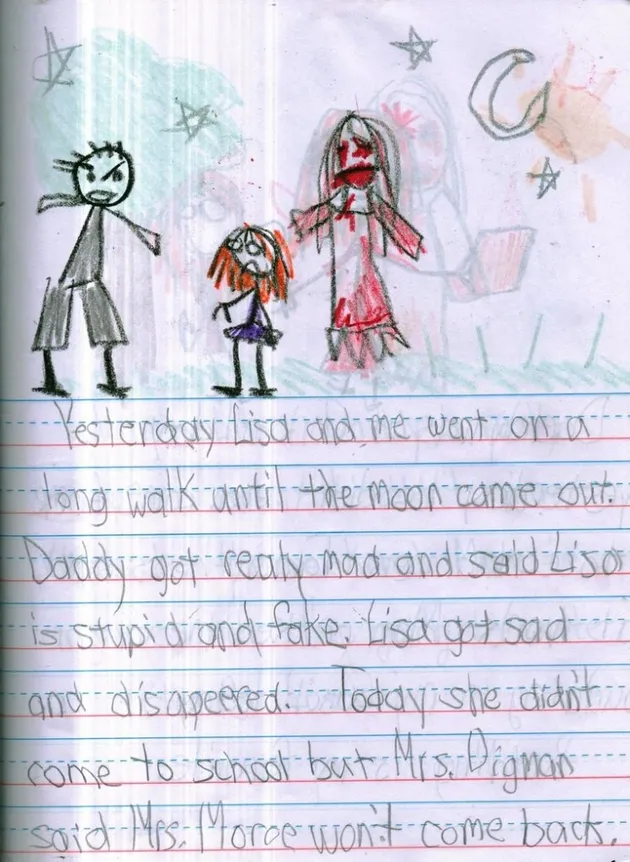 Yesterday Lisa and me went on a
long walk antil the moon came out.
Daddy got realy mad and said Lisa
is stupid and fake. Lisa got sad
and disapeered. Today she didn't
come to school but Mrs. Digman
said Mrs. Moroe won't come back.